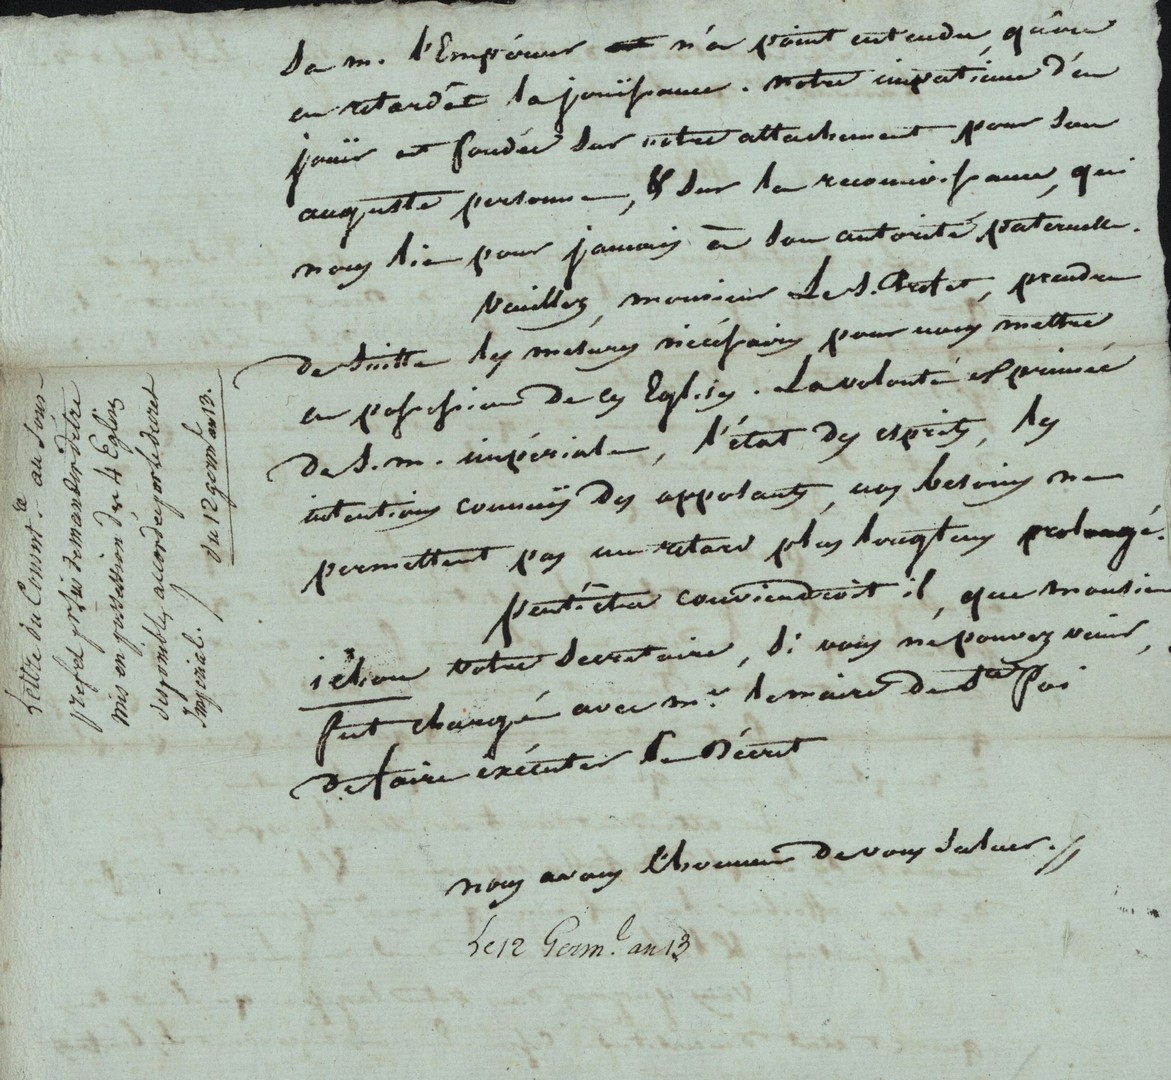 Sa m. l'Empéreur n'a point entendu, qu'on
en retardât la jouissance. notre impatience d'en
jouïr est fondée sur notre attachement pour son
auguste personne, & sur la reconnoissance, qui
nous lie pour jamais à son autorité paternelle.
Veuillez, monsieur Le S. Préfet, prendre
de suitte les mesures nécéssaires pour nous mettre
en possession de ces Eglises. La volonté exprimée
de S. m. impériale, l'état des esprits, les
intentions connuës des appelants, nos besoins ne
permettent pas un retard plus longtems prolongé.
peutêtre conviendroit il, que monsieu
votre Secretaire, si vous ne pouvez venir,
fut chargé avec mr. le maire de Ste foi
de faire exécuter le Décret
nous avons l'honneur de vous saluer.
Le 12 Germl. an 13
Lettre du Consistre. au Sous
préfet pour lui demander d'être
mis en possession des 4 Eglises
disponibles accordées par le decret
Impérial. du 12 germl. an 13.